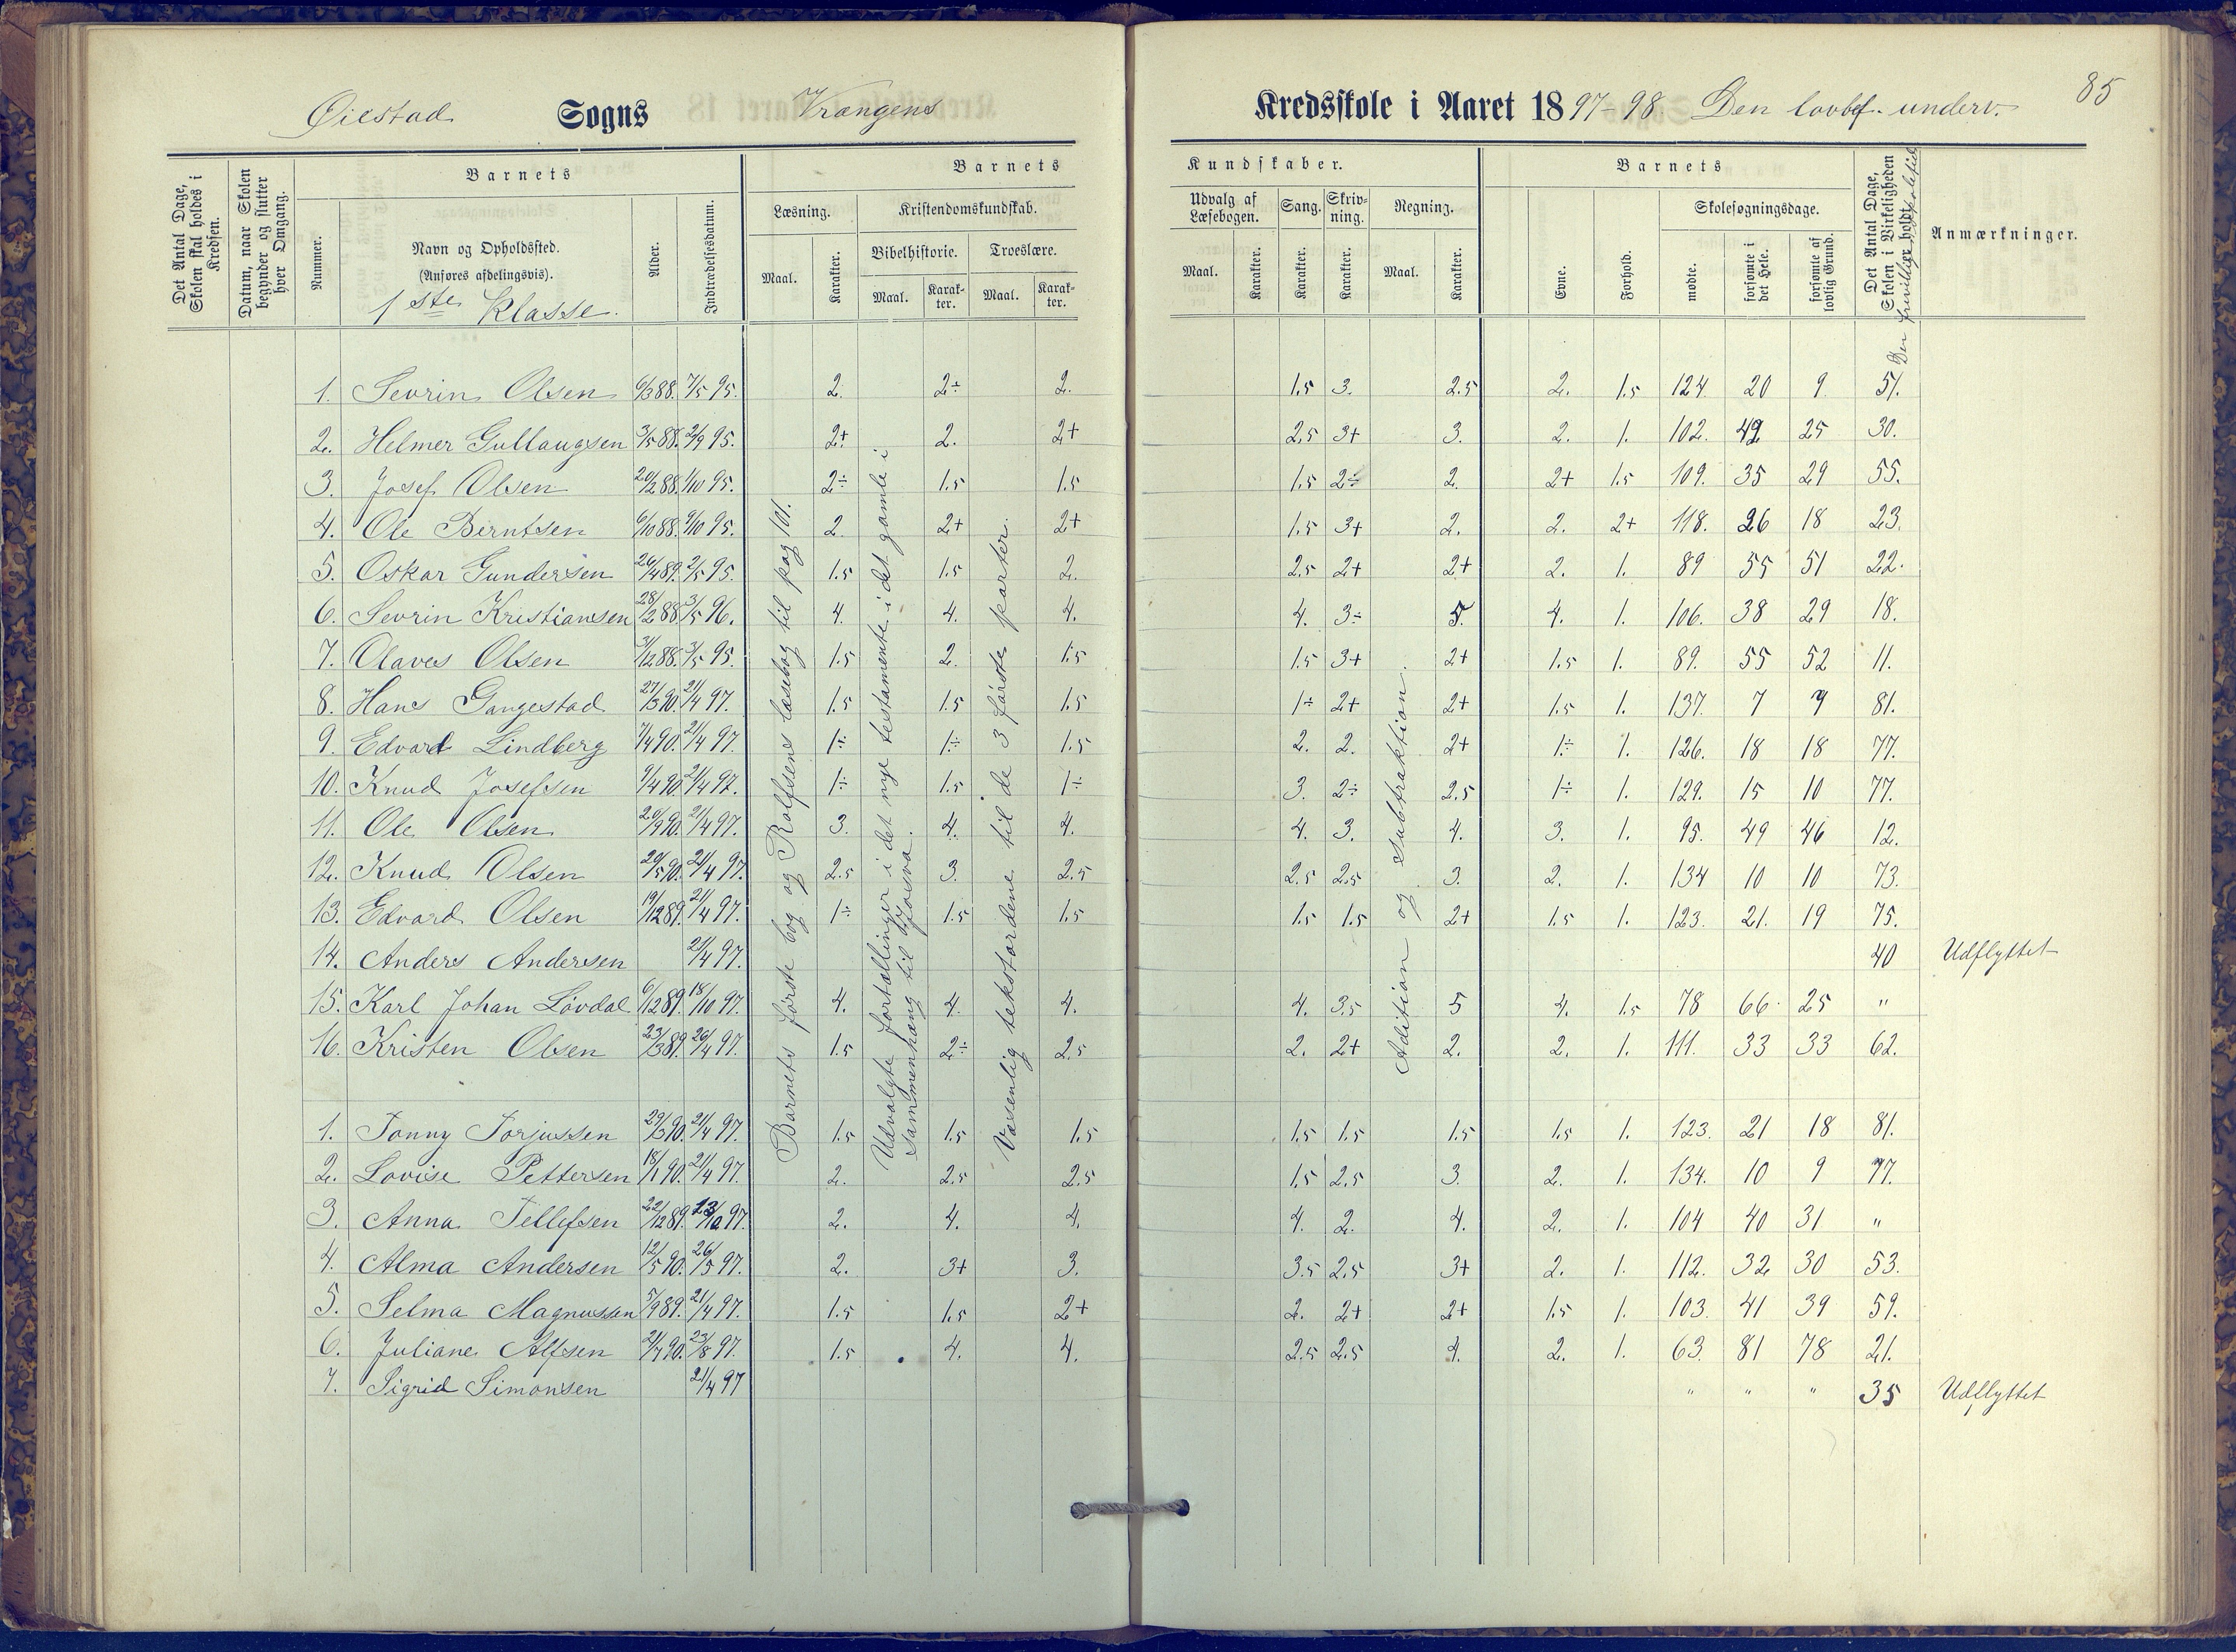 85
Øiestad Sogns Vrangens Kredsskole i Aaret 1897-98 Den lovbef. underv.
Det Antal Dage, Skolen skal holdes i Kredsen.
Datum, naar Skolen begynder og slutter hver Omgang.
Barnets
Nummer.
Navn og Opholdssted.
(Anføres afdelingsvis).
1ste Klasse.
Alder.
Indtrædelsesdatum.
Barnets Kundskaber.
Læsning.
Maal.
Karakter.
Kristendomskundskab.
Bibelhistorie.
Maal.
Karakter.
Troeslære.
Maal.
Karakter.
Udvalg af Læsebogen.
Maal.
Karakter.
Sang.
Karakter.
Skrivning.
Karakter.
Regning.
Maal.
Karakter.
Barnets
Evne.
Forhold.
Skolesøgningsdage.
mødte.
forsømte i det Hele.
forsømte af lovlig Grund.
Det Antal Dage, Skolen i Virkeligheden er holdt.
Den frivillige
Anmærkninger.
Barnets første bog og Rolfsens læsebog til pag 101.
Udvalgte fortællinger i det nye testamente. i det gamle i
sammenhæng til Josva.
Væsenlig tekstordene til de 3 første parter.
Adition og subtraktion.
1. Sevrin Olsen 6/3 88. 7/5 95. 2. 2÷ 2. 1.5 3. 2.5 2. 1.5 124. 20 9. 51.
2. Helmer Gullaugsen 3/5 88. 2/9 95. 2+ 2. 2+ 2.5 3+ 3. 2. 1. 102. 42 25 30.
3. Josef Olsen 20/2 88. 1/10 95. 2÷ 1.5 1.5 1.5 2÷ 2. 2+ 1.5 109. 35 29 55.
4. Ole Berntsen 6/10 88. 9/10 95. 2. 2+ 2+ 1.5 3+ 2. 2. 2+ 118. 26 18 23.
5. Oskar Gundersen 26/4 89. 2/5 95. 1.5 1.5 2. 2.5 2+ 2+ 2. 1. 89 55 51 22.
6. Sevrin Kristiansen 28/2 88. 3/5 96. 4. 4. 4. 4. 3÷ 5. 4. 1. 106. 38 29 18.
7. Olaves Olsen 3/12 88. 3/5 95. 1.5 2. 1.5 1.5 3+ 2+ 1.5 1. 89. 55 52 11.
8. Hans Gangestad 27/3 90. 21/4 97. 1.5 1.5 1.5 1÷ 2+ 2+ 1.5 1. 137. 7 7 81.
9. Edvard Lindberg 7/4 90. 21/4 97. 1÷ 1÷ 1.5 2. 2. 2+ 1÷ 1. 126. 18 18 77.
10. Knud Josefsen 9/4 90. 21/4 97. 1÷ 1.5 1÷ 3. 2÷ 2.5 1÷ 1. 129. 15 10 77.
11. Ole Olsen 20/9 90. 21/4 97. 3. 4. 4. 4. 3. 4. 3. 1. 95. 49 46 12.
12. Knud Olsen 29/5 90. 21/4 97. 2.5 3. 2.5 2.5 2.5 3. 2. 1. 134 10 10 73.
13. Edvard Olsen 19/12 89. 21/4 97. 1÷ 1.5 1.5 1.5 1.5 2+ 1.5 1. 123. 21. 19 75.
14. Anders Andersen 21/4 97. 40 Udflyttet
15. Karl Johan Lövdal 6/12 89. 18/10 97. 4. 4. 4. 4. 3.5 5 4. 1.5 78 66. 25 "
16. Kristen Olsen 23/3 89. 26/4 97. 1.5 2÷ 2.5 2. 2+ 2. 2. 1. 111. 33 33 62.
1. Tonny Torjussen 29/3 90. 21/4 97. 1.5 1.5 1.5 1.5 1.5 1.5 1.5 1. 123. 21 18 81.
2. Lovise Pettersen 18/1 90. 21/4 97. 2. 2.5 2.5 1.5 2.5 3. 2. 1. 134. 10 9 77.
3. Anna Tellefsen 22/12 89. 23/10 97. 2. 4. 4. 4. 2. 4. 2. 1. 104 40 31 "
4. Alma Andersen 12/5 90. 26/5 97. 2. 3+ 3. 3.5 2.5 3+ 2. 1. 112. 32 30 53.
5. Selma Magnussen 5/9 89. 21/4 97. 1.5 1.5 2+ 2. 2+ 2+ 1.5 1. 103. 41 39 59.
6. Juliane Alfsen 21/7 90. 23/8 97. 1.5 4. 4. 2.5 2.5 4. 2. 1. 63. 81 78 21.
7. Sigrid Simonsen 21/4 97 " " " 35 Udflyttet